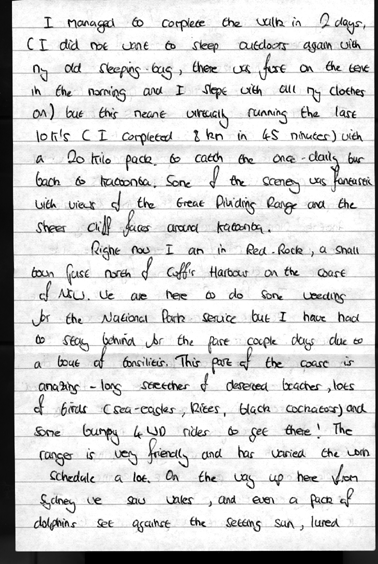 I managed to complete the walk in 2 days,
(I did not want to sleep outdoors again with
my old sleeping-bag, there was frost on the tent
in the morning and I slept with all my clothes
on) but this meant virtually running the last
10k's (I completed 8 km in 45 minutes) with
a 20 kilo pack, to catch the once-daily bus
back to Katoomba. Some of the scenery was fantastic
with views of the Great Dividing Range and the
sheer cliff faces around Katoomba.
Right now I am in Red-Rock, a small
town just north of Coff's Harbour on the coast
of NSW. We are here to do some weeding
for the National Park Service but I have had
to stay behind for the past couple days due to
a bout of tonsilitis. This part of the coast is
amazing - long stretches of deserted beaches, lots
of birds (sea-eagles, kites, black cockatoos) and
some bumpy 4WD rides to get there! The
ranger is very friendly and has varied the work
schedule a lot. On the way up here from
Sydney we saw wales, and even a pack of
dolphins set against the setting sun, lured